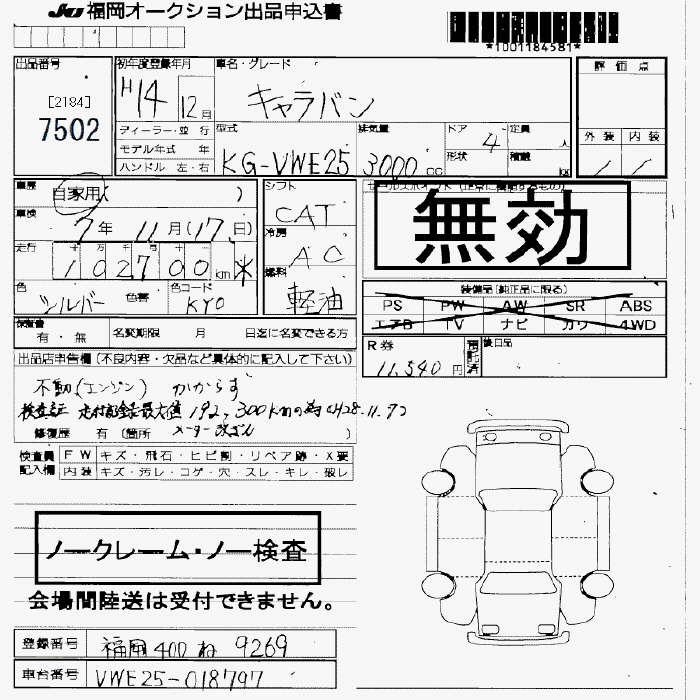 JU 福岡オークション出品申込書
*1001184581*
出品番号
[2184]
7502
初年度登録年月
H14 12月
車名・グレード
キャラバン
評価点
外装 内装
ディーラー・並行
モデル年式 年
ハンドル 左・右
型式
KG-VWE25
排気量
3000 CC
ドア 4
形状
定員 人
積載 kg
車歴
自家用( )
車検
7年 11月(17日)
走行
十 万 千 百 十 一
102700 km *
色
シルバー 色替
色コード
KY0
シフト
CAT
冷房
AC
燃料
軽油
無効
装備品(純正品に限る)
PS PW AW SR ABS
エアB TV ナビ カワ 4WD
保証書
有・無
名変期限 月 日迄に名変できる方
R券
11,540円
預託済
後日品
出品店申告欄(不良内容・欠品など具体的に記入して下さい)
不動(エンジン) かからず
検査証 走行記録最大値 192,300kmの為 (H28.11.7)
修復歴 有 (箇所 メーター改ざん )
検査員記入欄
FW キズ・飛石・ヒビ割・リペア跡・X要
内装 キズ・汚レ・コゲ・穴・スレ・キレ・破レ
ノークレーム・ノー検査
会場間陸送は受付できません。
登録番号 福岡 400 ね 9269
車台番号 VWE25-018797